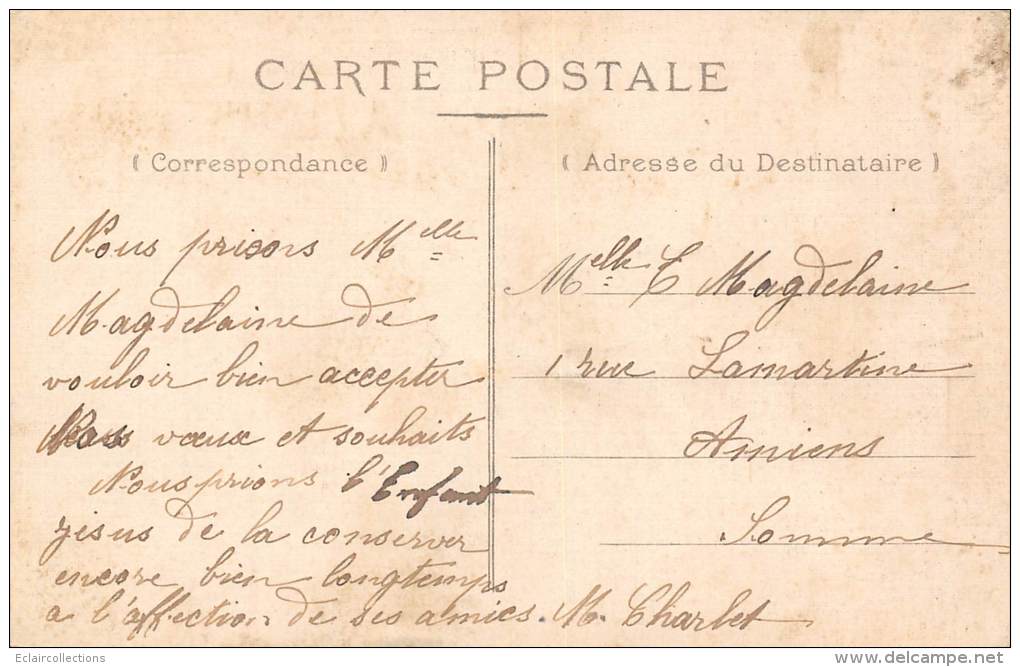 CARTE POSTALE
( Correspondance )
Nous prions Melle
Magdelaine de
vouloir bien accepter
Nos vœux et souhaits
Nous prions l'Enfant
Jésus de la conserver
encore bien longtemps
a l'affection de ses amies. M. Charlet
( Adresse du Destinataire )
Melle C Magdelaine
1 rue Lamartine
Amiens
Somme
Eclaircollections
delcampe.net